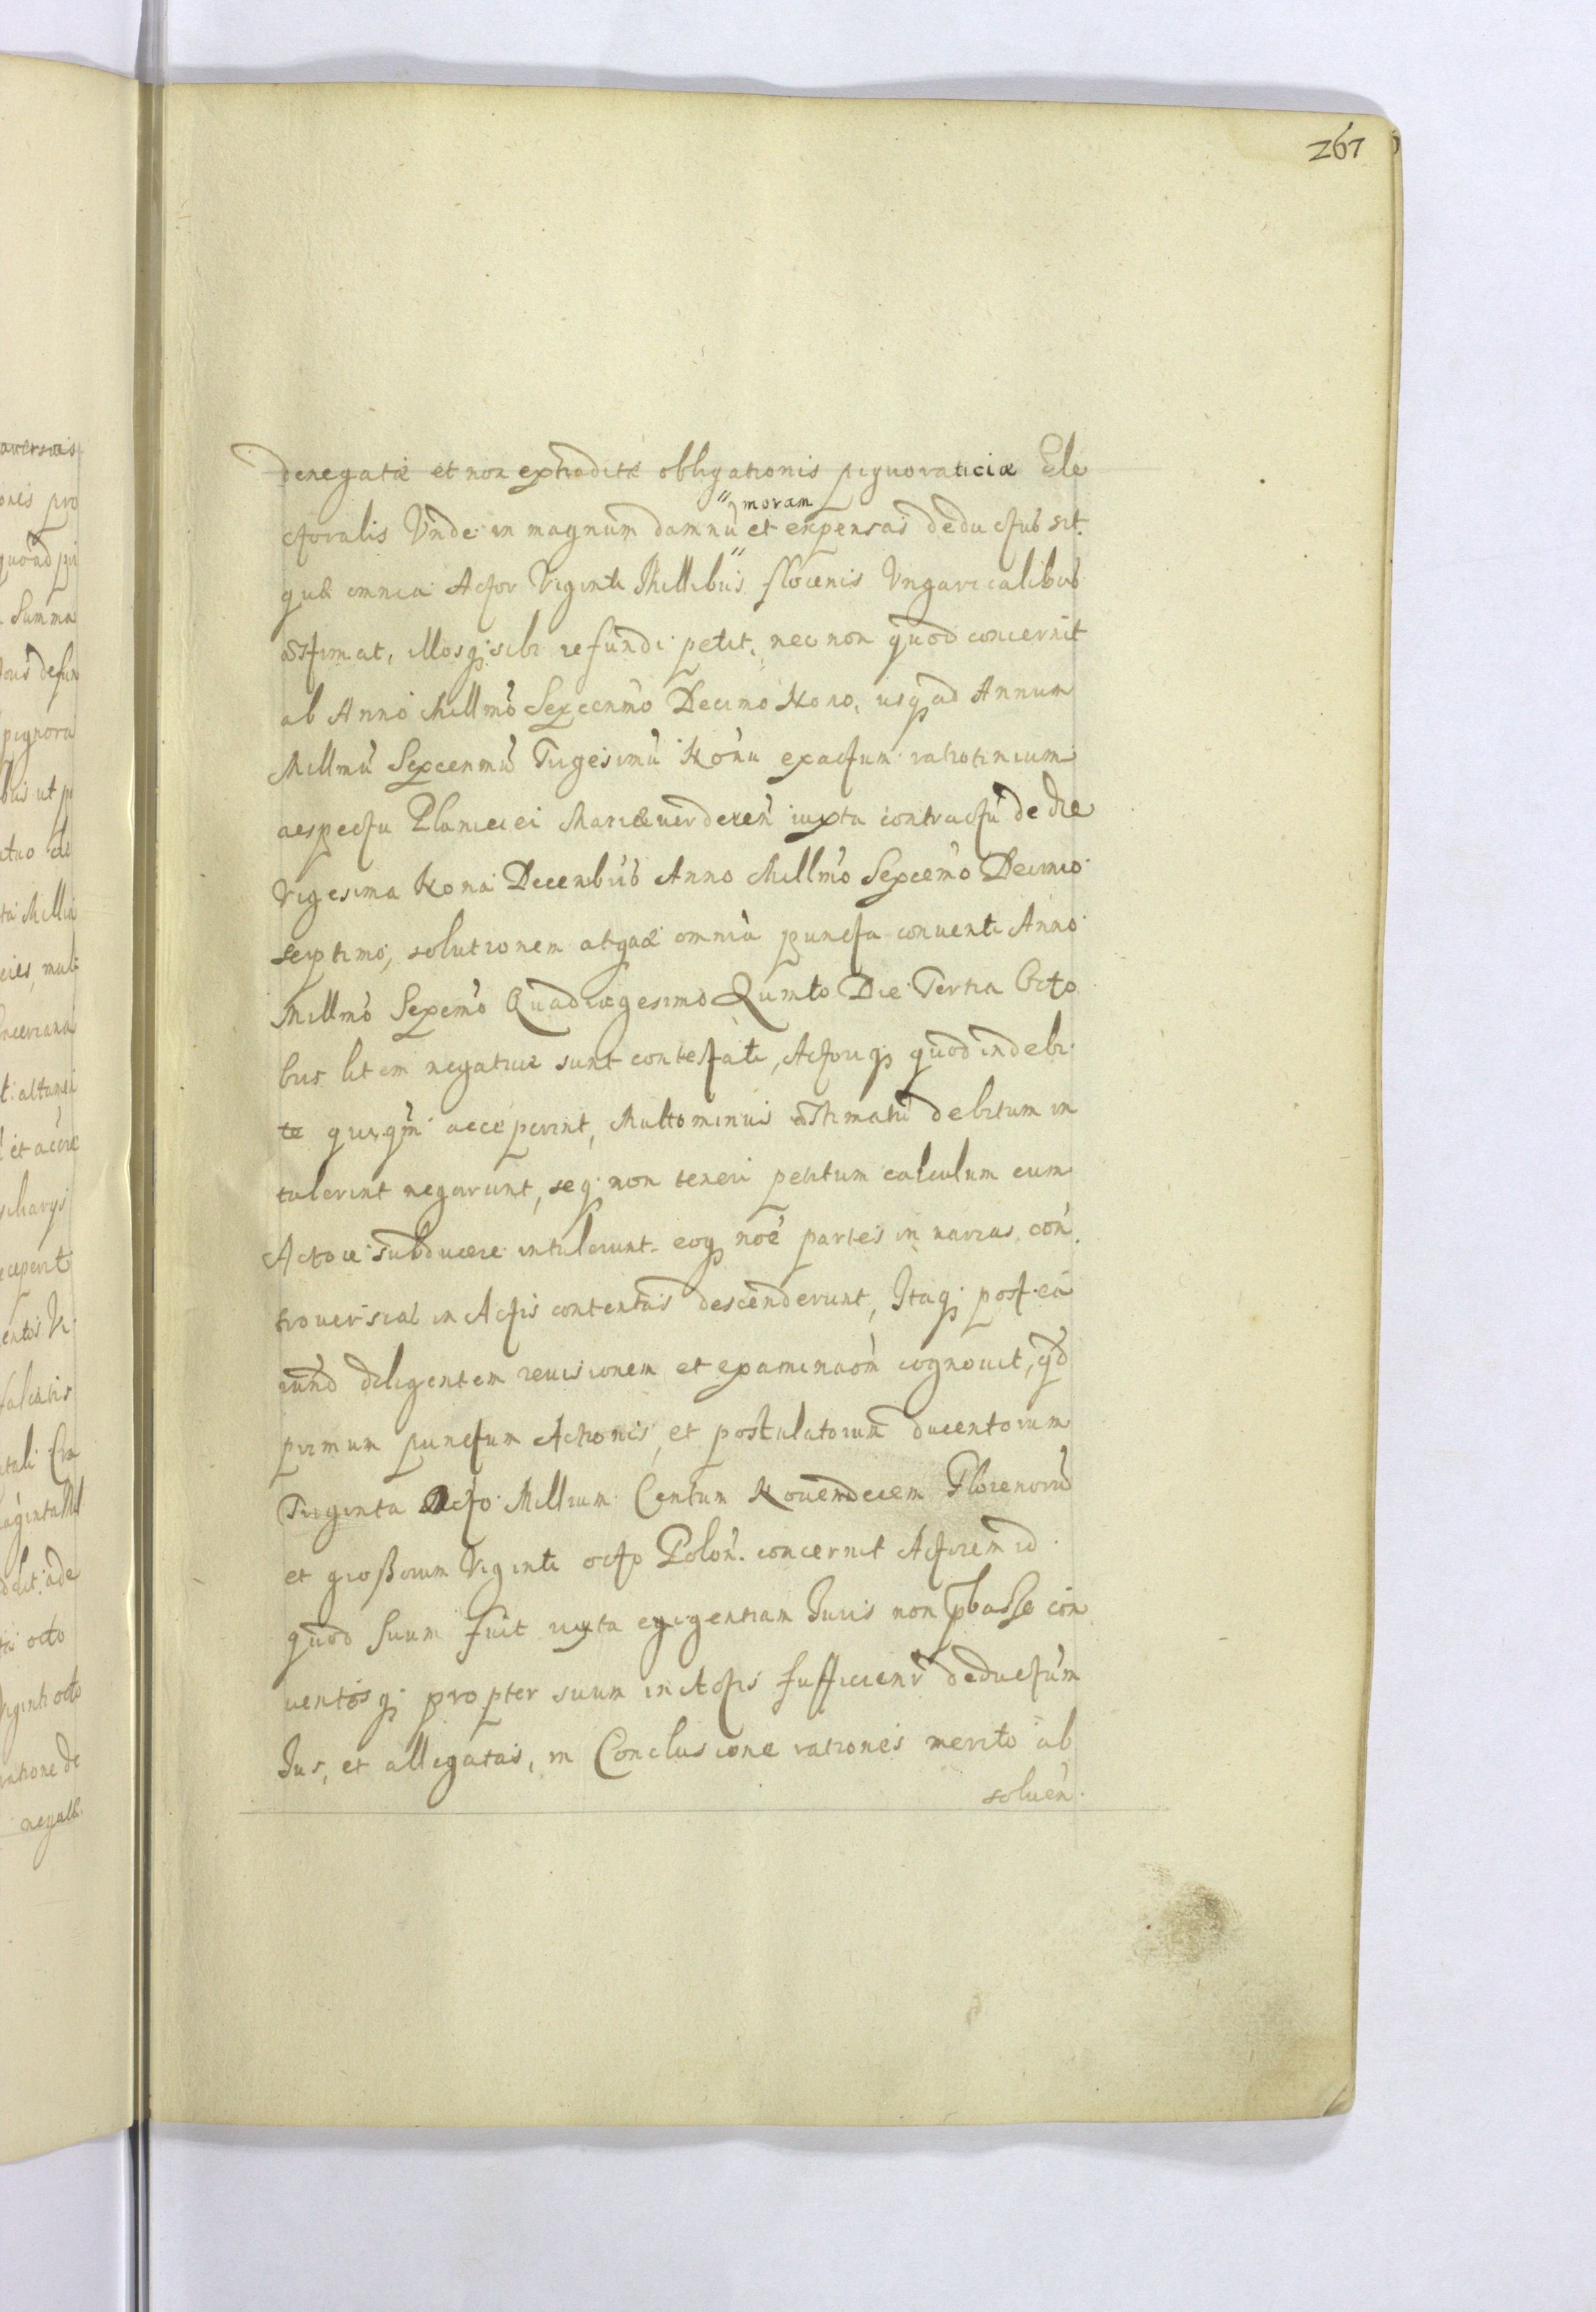 267
denegatæ et non extraditæ obligationis pignoraticiæ Ele
moram
ctoralis Vnde in magnum damnũ et expensas deductus sit.
quæ omnia Actor Viginti Millibus florenis Vngaricalibus
æstimat, illosq; sibi refundi petit, nec non quod concernit
ab Anno Millmo Sexcenmo Decimo Nono, usq; ad Annum
Millmũ Sexcenmũ Trigesimũ Nonũ exactum ratiotinium
respectu Planiciei Mariæuerderen iuxta contractũ de die
Vigesima Nona Decembris Anno Millmo Sexcemo Decimo
septimo, solutionem atquæ omnia puncta conuenti Anno
Millmo Sexcemo Quadragesimo Quinto Die Tertia Octo
bris litem negatiue sunt contestati, Actoriq; quod indebi
te quicqm acceperint, Multominus æstimatũ debitum in
tulerint negarunt, seq; non teneri petitum calculum cum
Actore subducere intulerunt eoq; noe partes in varias con
trouersias in Actis contentas descenderunt, Itaq; post ea
rund diligentem reuisionem et examinaon cognouit, qd
primum punctum Actionis, et postulatorum ducentorum
Triginta Octo Millium Centum Nouendecem Florenorũ
et großorum Viginti octo Polon. concernit Actorem id
quod suum fuit iuxta exigentiam Iuris non pbasse con
uentosq; propter suum in Actis sufficienr deductum
Ius, et allegatas, in Conclusione rationes merito ab
soluen.